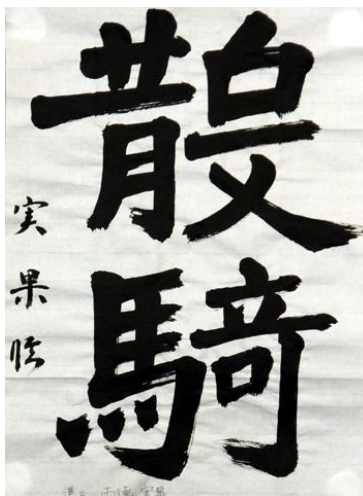 散騎
実果臨